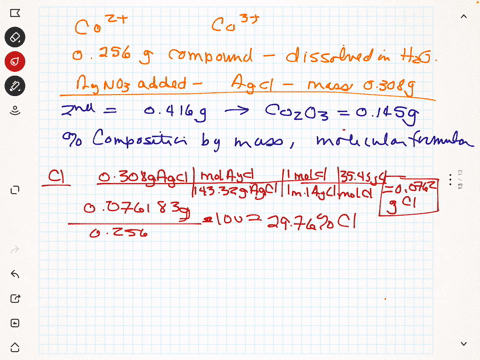 Co²⁺ Co³⁺
0.256 g compound – dissolved in H₂O.
AgNO₃ added – AgCl – mass 0.308g
2nd = 0.416g → Co₂O₃ = 0.145g
% Composition by mass, molecular formula
Cl 0.308gAgCl | molAgCl | 1 molCl | 35.45gCl
143.32gAgCl | 1m.1AgCl | molCl =0.0762
g Cl
0.076183g
0.256 ×100 = 29.76% Cl